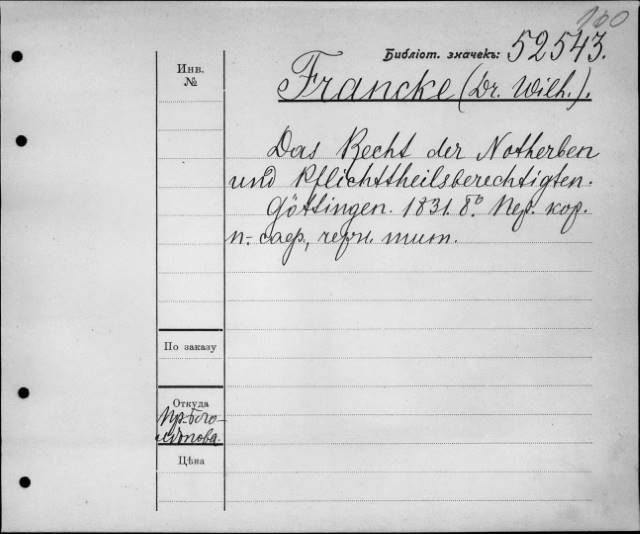 100
Библіот. значекъ: 52543.
Инв.
№
Francke (Dr. Wilh.).
Das Recht der Notherben
und Pflichttheilsberechtigten.
Göttingen. 1831. 8º. Пер. кор.
п. саф., черн. тит.
По заказу
Откуда
Пр. Бого-
лѣпова.
Цѣна